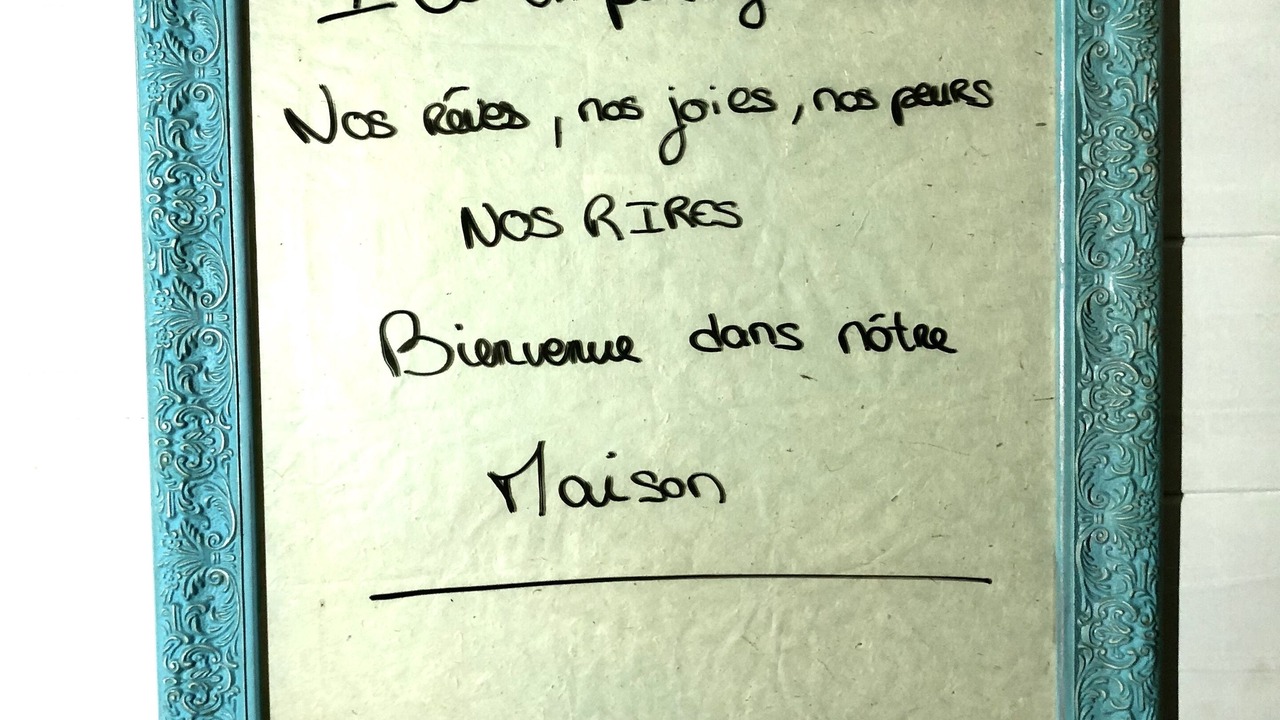 Nos rêves, nos joies, nos peurs
NOS RIRES
Bienvenue dans nôtre
Maison